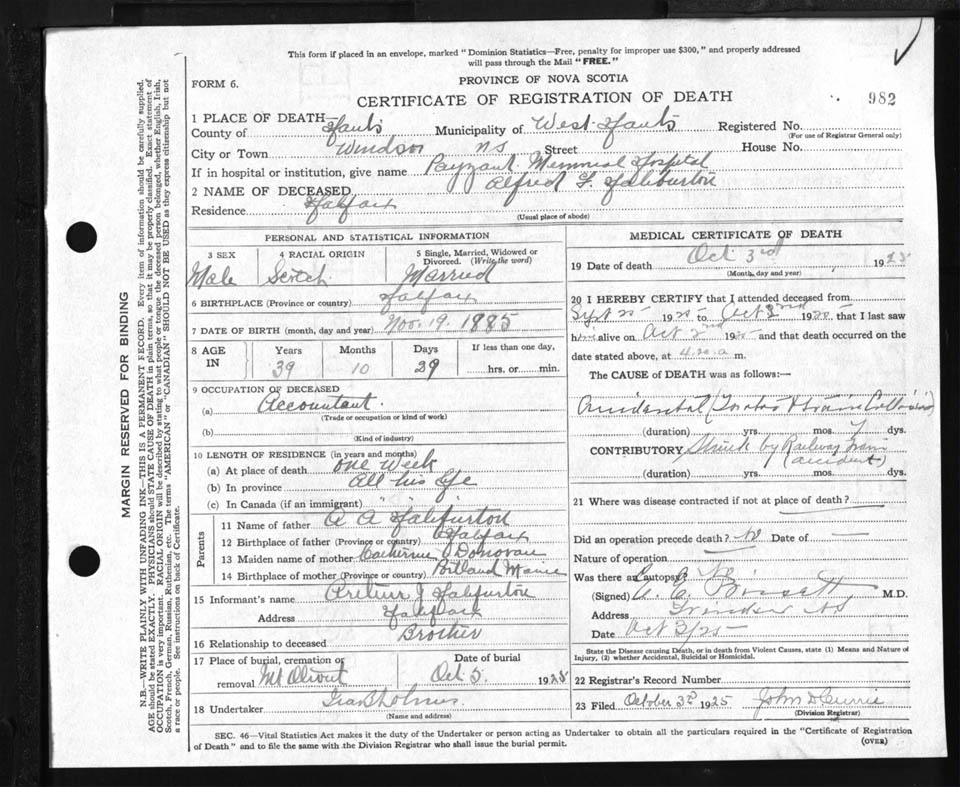 This form if placed in an envelope, marked "Dominion Statistics—Free, penalty for improper use $300," and properly addressed
will pass through the Mail "FREE."
FORM 6.
PROVINCE OF NOVA SCOTIA
CERTIFICATE OF REGISTRATION OF DEATH
982
1 PLACE OF DEATH
County of Hants Municipality of West Hants Registered No.
(For use of Registrar General only)
City or Town Windsor NS Street House No.
If in hospital or institution, give name Payzant Memorial Hospital
2 NAME OF DECEASED Alfred F. Haliburton
Residence Halifax
(Usual place of abode)
PERSONAL AND STATISTICAL INFORMATION
3 SEX 4 RACIAL ORIGIN 5 Single, Married, Widowed or Divorced. (Write the word)
Male Scotch Married
6 BIRTHPLACE (Province or country) Halifax
7 DATE OF BIRTH (month, day and year) Nov. 19. 1885
8 AGE IN Years Months Days If less than one day,
39 10 29 hrs. or min.
9 OCCUPATION OF DECEASED
(a) Accountant.
(Trade or occupation or kind of work)
(b)
(Kind of industry)
10 LENGTH OF RESIDENCE (in years and months)
(a) At place of death one week
(b) In province All his life
(c) In Canada (if an immigrant) " "
Parents
11 Name of father A A Haliburton
12 Birthplace of father (Province or country) Halifax
13 Maiden name of mother Catherine Donovan
14 Birthplace of mother (Province or country) Portland Maine
15 Informant's name Arthur J Haliburton
Address Halifax
16 Relationship to deceased Brother
17 Place of burial, cremation or removal Mt Olivet Date of burial Oct 5. 1925
18 Undertaker
(Name and address)
MEDICAL CERTIFICATE OF DEATH
19 Date of death Oct 3rd 1925
(Month, day and year)
20 I HEREBY CERTIFY that I attended deceased from
Sept 25 1925 to Oct 2nd 1925, that I last saw
him alive on Oct 2nd 1925 and that death occurred on the
date stated above, at 4.20 a m.
The CAUSE of DEATH was as follows:—
Accidental (Motor & train Collision)
(duration) yrs. mos. 7 dys.
CONTRIBUTORY Struck by Railway train
(accident)
(duration) yrs. mos. dys.
21 Where was disease contracted if not at place of death? ?
Did an operation precede death? No Date of —
Nature of operation
Was there an autopsy? No
(Signed) M.D.
Address Windsor NS
Date Oct 3/25
State the Disease causing Death, or in death from Violent Causes, state (1) Means and Nature of
Injury, (2) whether Accidental, Suicidal or Homicidal.
22 Registrar's Record Number
23 Filed October 3rd 1925 John D Currie
(Division Registrar)
SEC. 46—Vital Statistics Act makes it the duty of the Undertaker or person acting as Undertaker to obtain all the particulars required in the "Certificate of Registration
of Death" and to file the same with the Division Registrar who shall issue the burial permit.
(OVER)
MARGIN RESERVED FOR BINDING
N.B.—WRITE PLAINLY WITH UNFADING INK—THIS IS A PERMANENT RECORD. Every item of information should be carefully supplied.
AGE should be stated EXACTLY. PHYSICIANS should STATE CAUSE OF DEATH in plain terms, so that it may be properly classified. Exact statement of
OCCUPATION is very important. RACIAL ORIGIN will be described by stating to what people or tongue the deceased person belonged, whether English, Irish,
Scotch, French, German, Russian, Ruthenian, etc. The terms "AMERICAN" or "CANADIAN" SHOULD NOT BE USED as they express citizenship but not
a race or people. See instructions on back of Certificate.